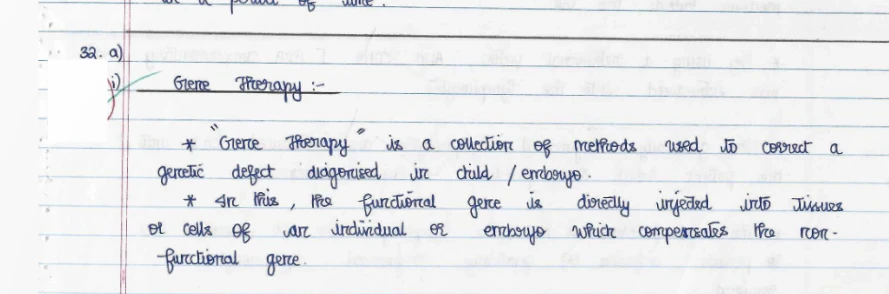 in a period of time.
32. a)
i) Gene Therapy :-
* "Gene Therapy" is a collection of methods used to correct a
genetic defect diagonised in child / embryo.
* In this, the functional gene is directly injected into tissues
or cells of an individual or embryo which compensates the non-
-functional gene.